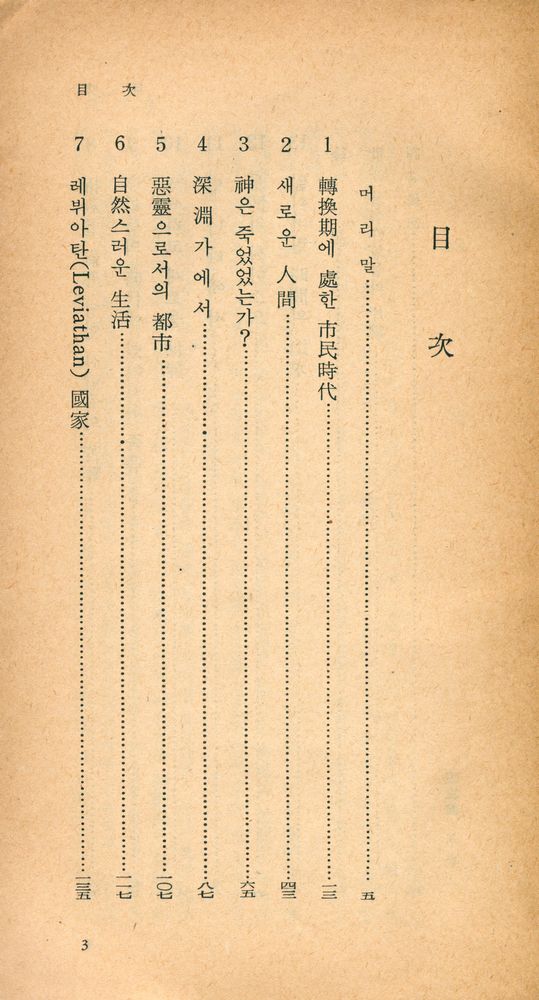 目次
머리말……五
1 轉換期에 處한 市民時代……一三
2 새로운 人間……四三
3 神은 죽었었는가?……六五
4 深淵가에서……八七
5 惡靈으로서의 都市……一〇七
6 自然스러운 生活……一一七
7 레뷔아탄(Leviathan) 國家……一三五
目次
3